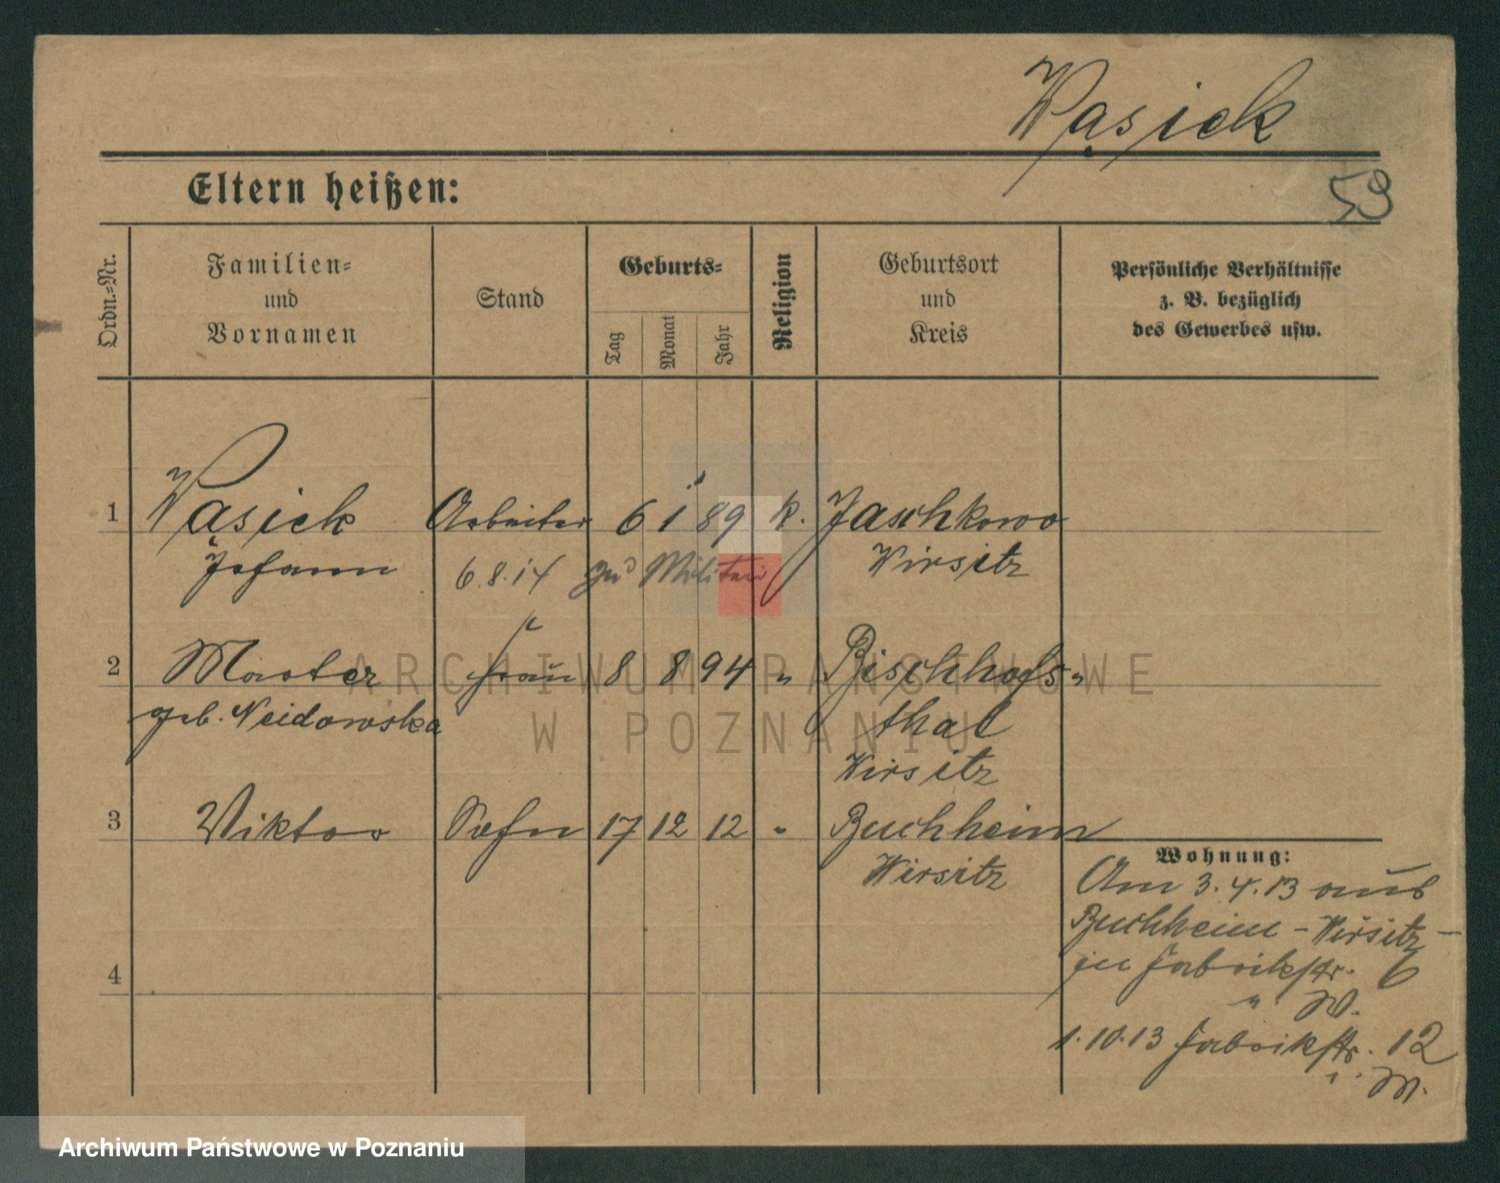 Wąsick
Eltern heißen:
59
Ordn.-Nr.
Familien-
und
Vornamen
Stand
Geburts-
Tag
Monat
Jahr
Religion
Geburtsort
und
Kreis
Persönliche Verhältnisse
z. B. bezüglich
des Gewerbes usw.
1 Wąsick Arbeiter 6 1 89 k. Jaschkowo
Johann 6.8.14 zu Militär Wirsitz
2 Frau 8 8 94 " Bischhofs-
geb. Neidowska thal
Wirsitz
3 Viktor Sohn 17 12 12 " Buchheim
Wirsitz
Wohnung:
Am 3.4.13 aus
Buchheim - Wirsitz -
in Fabrikstr. 6
" W.
4
1.10.13 Fabrikstr. 12
ARCHIWUM PAŃSTWOWE
W POZNANIU
Archiwum Państwowe w Poznaniu